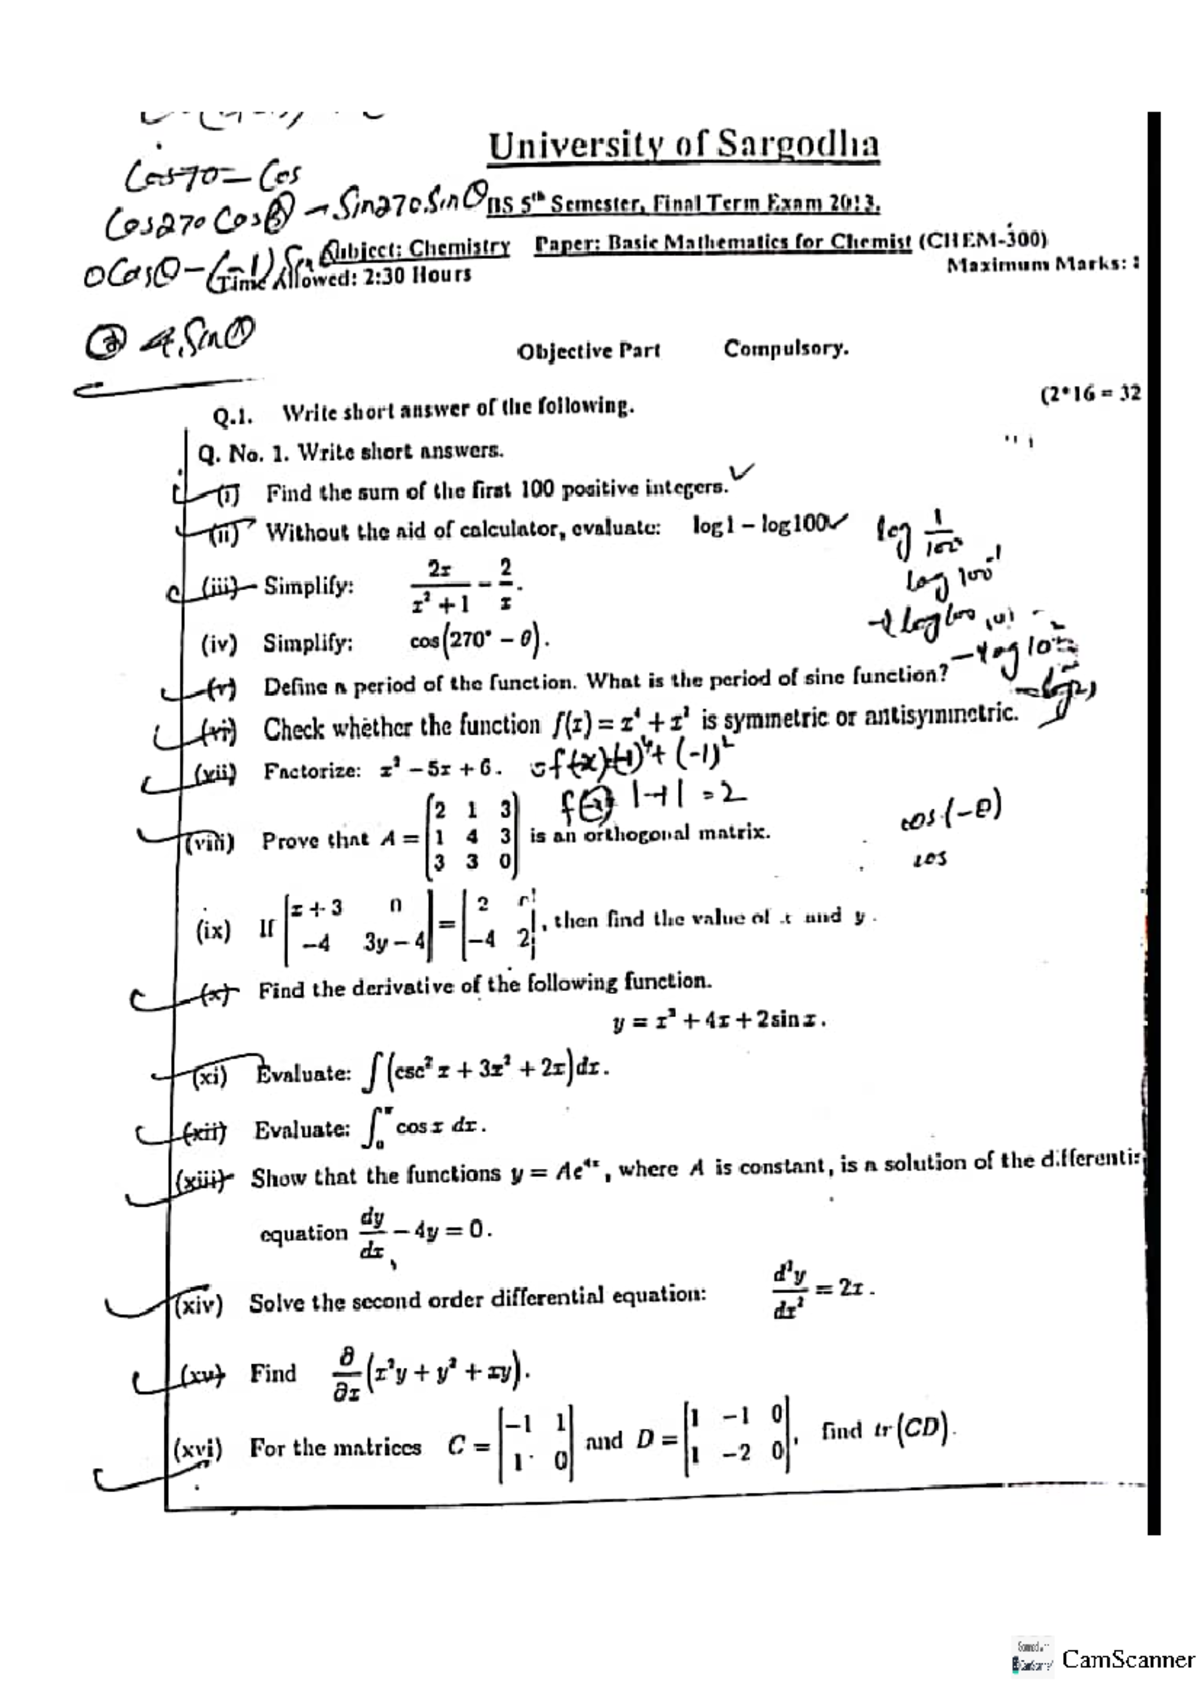 University of Sargodha
Cos70 = Cos
Cos270 Cosθ - Sin270.Sinθ
BS 5th Semester, Final Term Exam 2013.
Subject: Chemistry Paper: Basic Mathematics for Chemist (CHEM-300)
0Cosθ - (-1) Sin
Time Allowed: 2:30 Hours Maximum Marks:
Sinθ
Objective Part Compulsory.
Q.1. Write short answer of the following. (2*16 = 32
Q. No. 1. Write short answers.
(i) Find the sum of the first 100 positive integers.
(ii) Without the aid of calculator, evaluate: log1 − log100
log 1/100
log 100⁻¹
(iii) Simplify: 2x/(x² + 1) − 2/x.
(iv) Simplify: cos(270° − θ).
(v) Define a period of the function. What is the period of sine function?
(vi) Check whether the function f(x) = x⁴ + x² is symmetric or antisymmetric.
(vii) Factorize: x² − 5x + 6. f(x)=(-1)⁴+(-1)²
= 2
(viii) Prove that A = [2 1 3; 1 4 3; 3 3 0] is an orthogonal matrix.
cos(-θ)
cos
(ix) If [x + 3 0; −4 3y − 4] = [2 0; −4 2], then find the value of x and y.
(x) Find the derivative of the following function.
y = x³ + 4x + 2sin x.
(xi) Evaluate: ∫(csc² x + 3x² + 2x)dx.
(xii) Evaluate: ∫₀^π cos x dx.
(xiii) Show that the functions y = Ae⁴ˣ, where A is constant, is a solution of the differenti
equation dy/dx − 4y = 0.
(xiv) Solve the second order differential equation: d²y/dx² = 2x.
(xv) Find ∂/∂x (x²y + y² + xy).
(xvi) For the matrices C = [−1 1; 1 0] and D = [1 −1 0; 1 −2 0], find tr(CD).
CamScanner